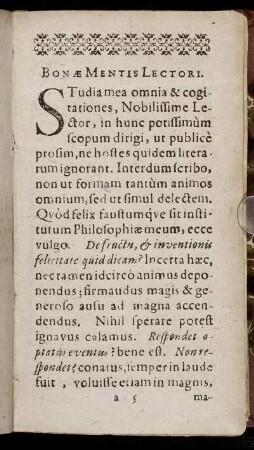 BONÆ MENTIS LECTORI.
STudia mea omnia & cogi-
tationes, Nobilissime Le-
ctor, in hunc potissimùm
scopum dirigi, ut publicè
prosim, ne hostes quidem litera-
rum ignorant. Interdum scribo,
non ut formam tantùm animos
omnium, sed ut simul delectem.
Qvòd felix faustumq́ve sit insti-
tutum Philosophiæ meum, ecce
vulgo. De fructu, & inventionis
felicitate quid dicam? Incerta hæc,
nec tamen idcirco animus depo-
nendus; firmaudus magis & ge-
neroso ausu ad magna accen-
dendus. Nihil sperare potest
ignavus calamus. Respondet o-
ptatis eventus? bene est. Non re-
spondet? conatus, semper in laude
fuit, voluisse etiam in magnis,
a 5 ma-